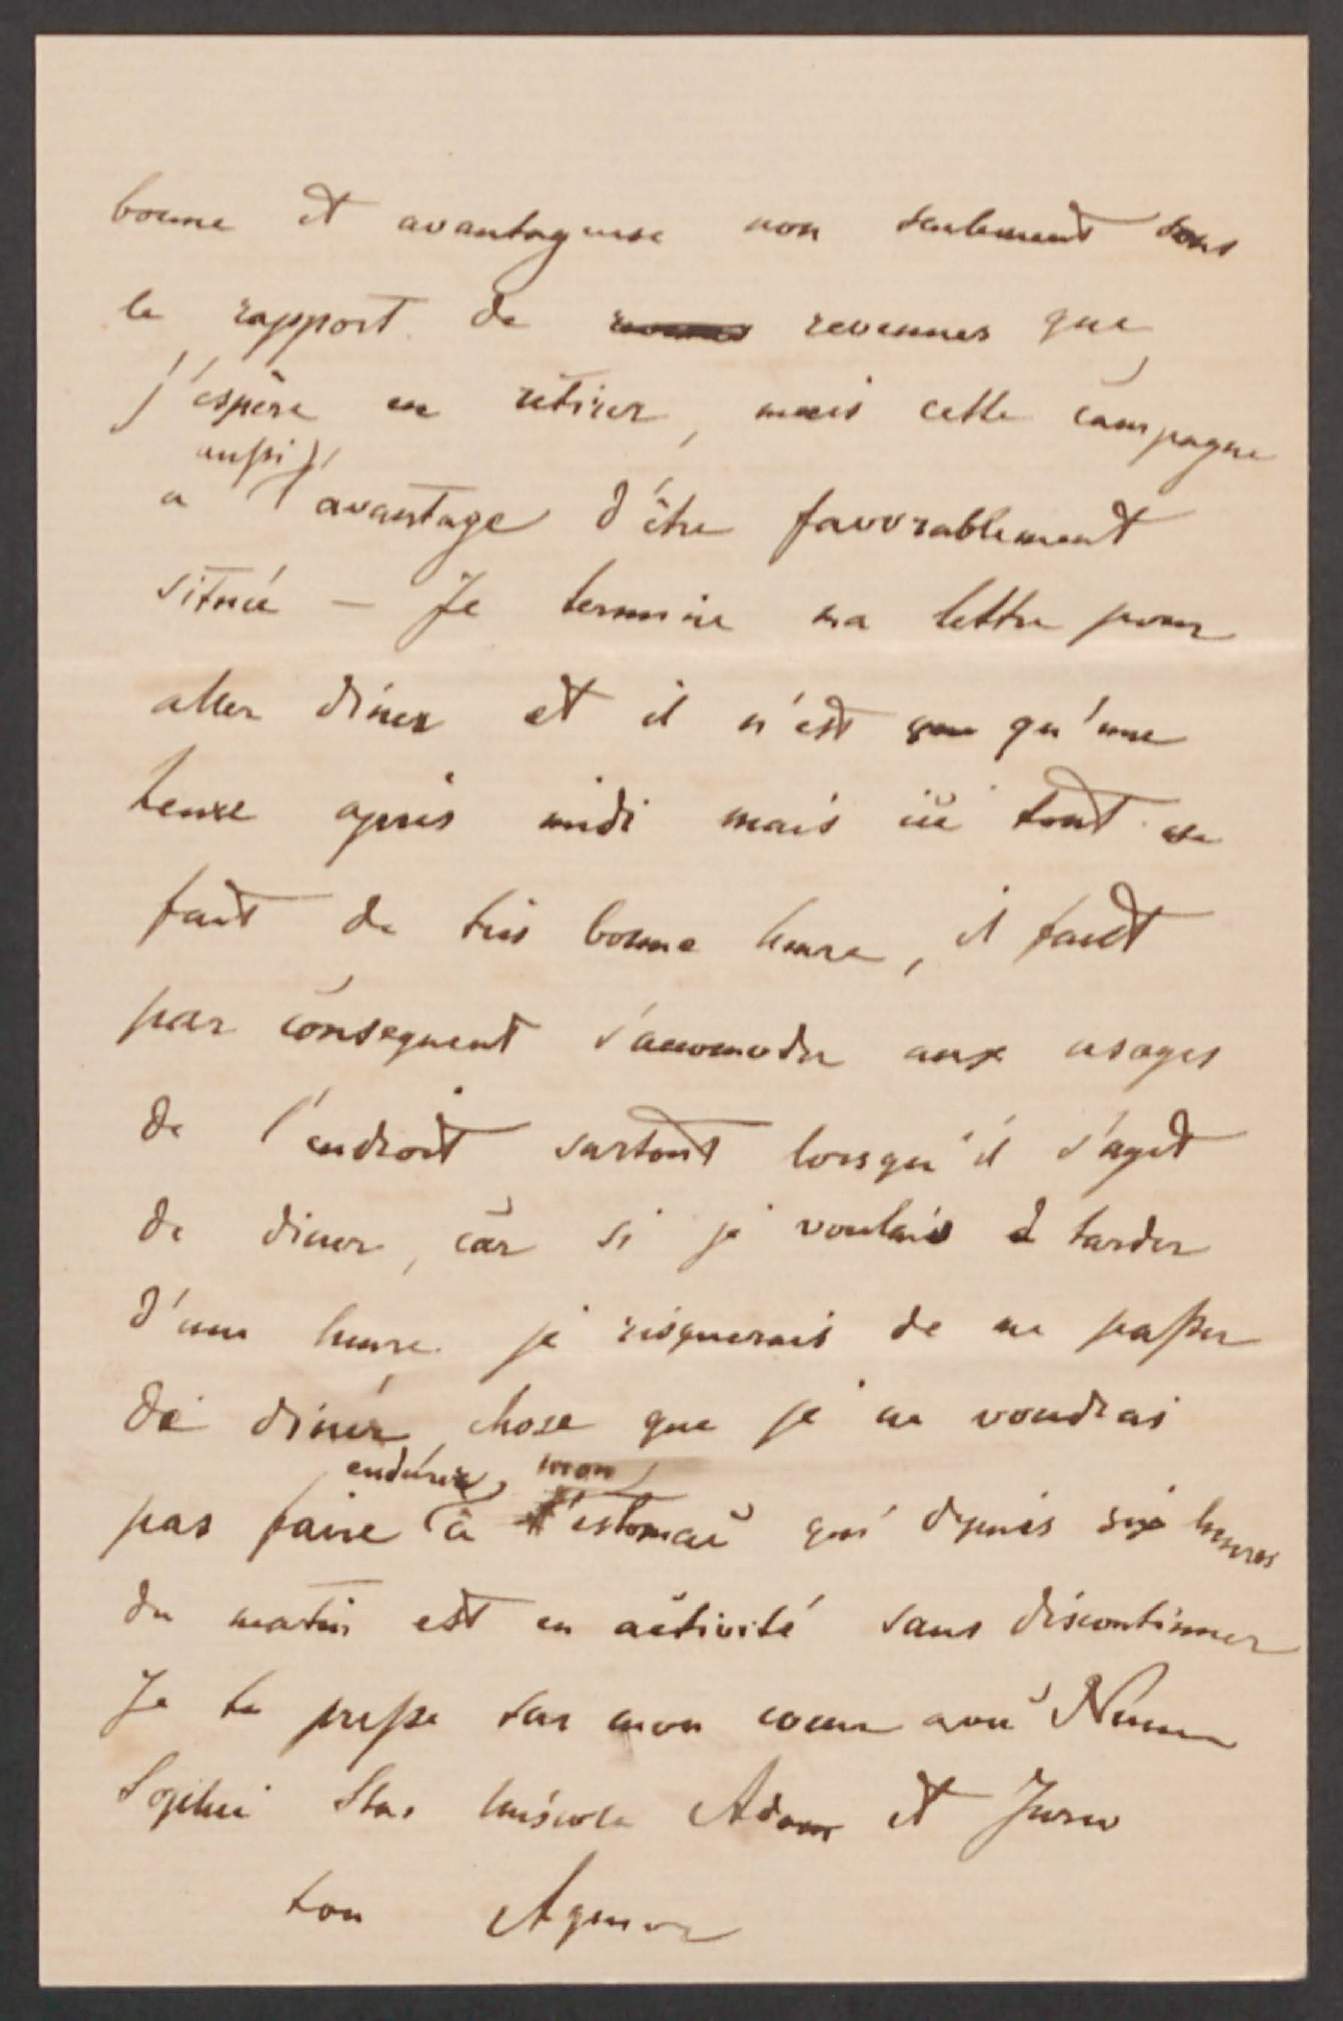 bonne et avantageuse non seulement sous
le rapport de revennes que
j'espère en rétirer, mais cette campagne
aussi
a l'avantage d'être favorablement
situé – Je termine ma lettre pour
aller diner et il n'est que qu'une
heure après midi mais ici tout se
fait de très bonne heure, il faut
par conséquent s'accomoder aux usages
de l'endroit surtout lorsqu'il s'agit
de diner, car si je voulais tarder
d'une heure je risquerais de me passer
de diner, chose que je ne voudrai
endurer mon
pas faire à l'estomac qui depuis six heures
du matin est en activité sans discontinuer
Je te presse sur mon coeur avec
Sophie Stas Adam et Jurw
ton Agenor